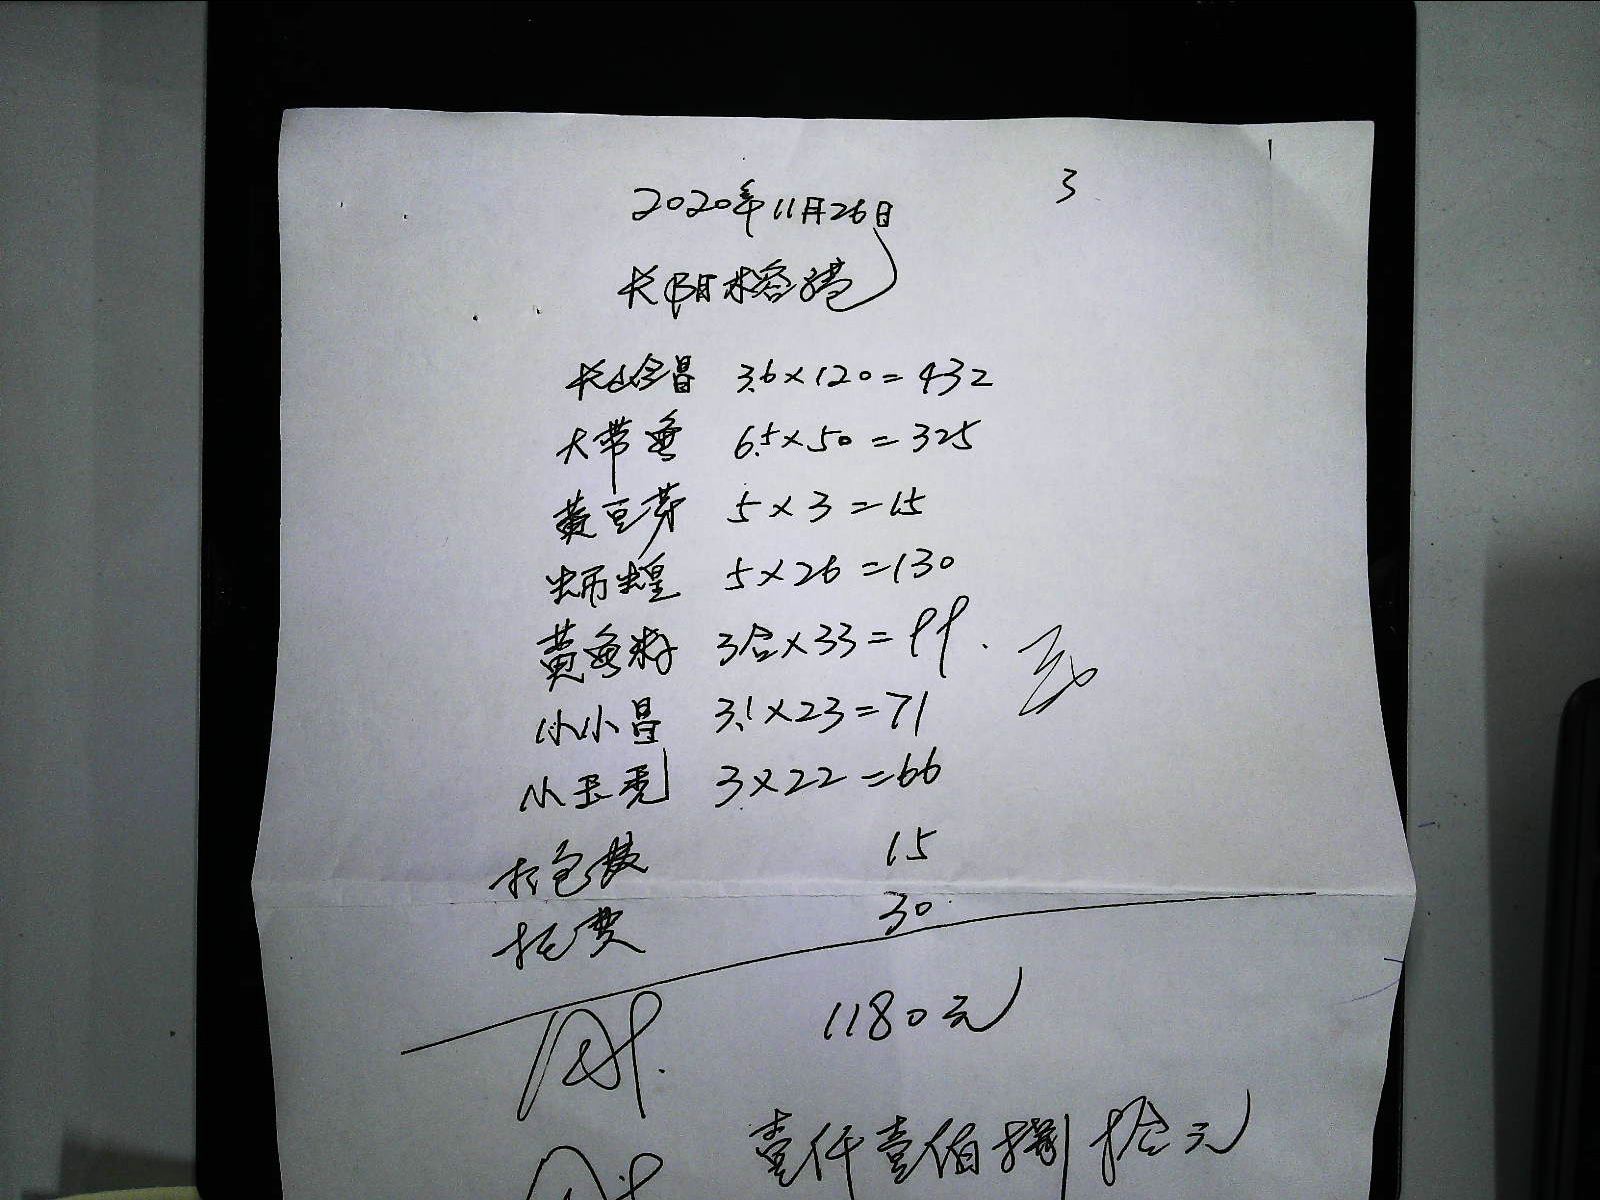 3
2020年11月26日
长阳榕港
长山仓昌 3.6×120=432
大带鱼 6.5×50=325
黄豆芽 5×3=15
蛳蝗 5×26=130
黄鱼籽 3合×33=99.
小小昌 3.1×23=71
小玉秃 3×22=66
打包费 15
托费 30
1180元
壹仟壹佰捌拾元